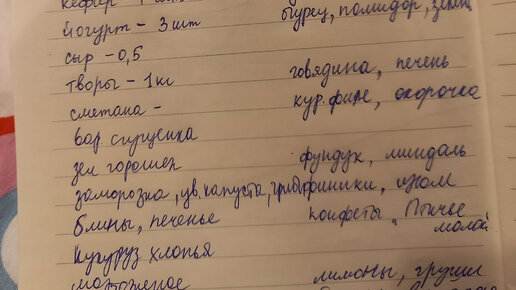 кефир -
огурец, помидор, зелень
йогурт - 3 шт
сыр - 0,5
творог - 1 кг
говядина, печень
сметана -
кур. филе, окорочка
вар сгущенка
зел горошек
фундук, миндаль
заморозка, цв. капуста, грибы
финики, изюм
блины, печенье
конфеты, Птичье
молоко
кукуруз хлопья
мороженое
лимоны, груши